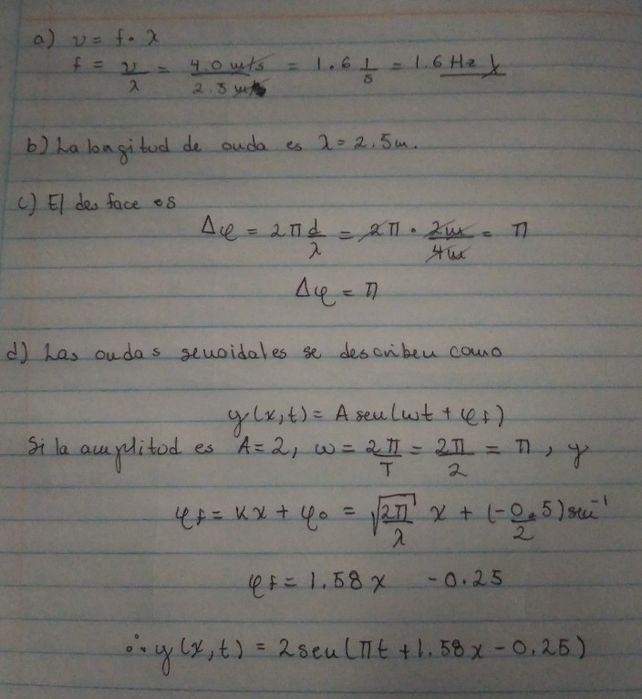 a) v = f · λ
f = v/λ = 4.0 mts / 2.5 mts = 1.6 1/s = 1.6 Hz
b) La longitud de onda es λ = 2.5m.
c) El desface es
Δφ = 2π d/λ = 2π · 2m/4m = π
Δφ = π
d) Las ondas senoidales se describen como
y(x,t) = A sen(ωt + φf)
Si la amplitud es A=2, ω = 2π/T = 2π/2 = π, y
φf = Kx + φ0 = √(2π/λ) x + (-0.5/2) sen⁻¹
φf = 1.58x - 0.25
∴ y(x,t) = 2 sen(πt + 1.58x - 0.25)